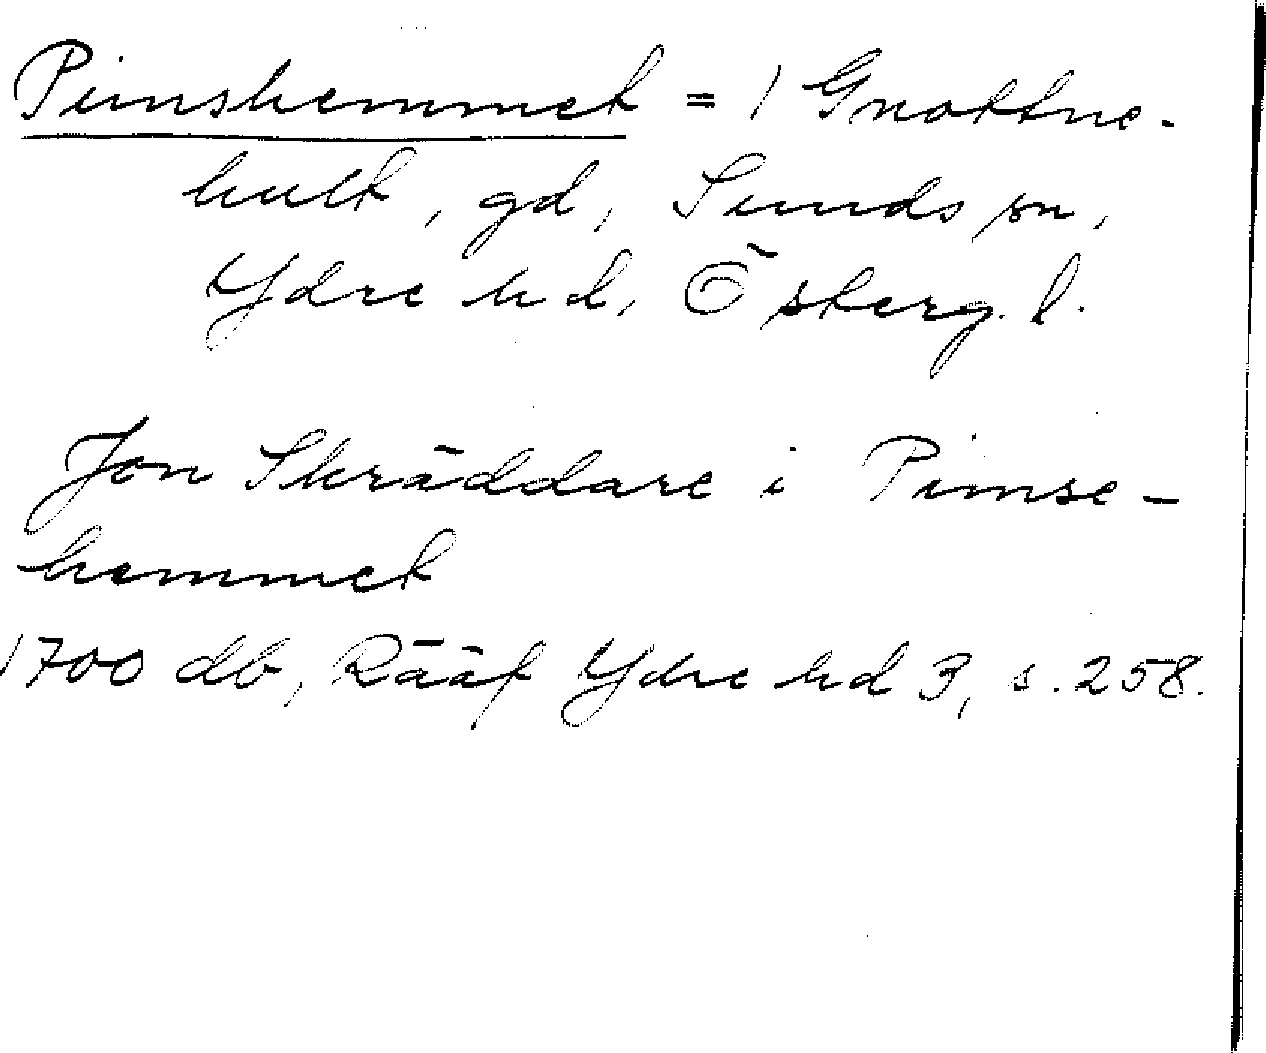 Pimshemmet = 1 Gnottne-
hult, gd, Sunds sn,
Ydre hd, Österg. l.
Jon Skräddare i Pimse-
hemmet
1700 db, Rääf Ydre hd 3, s. 258.